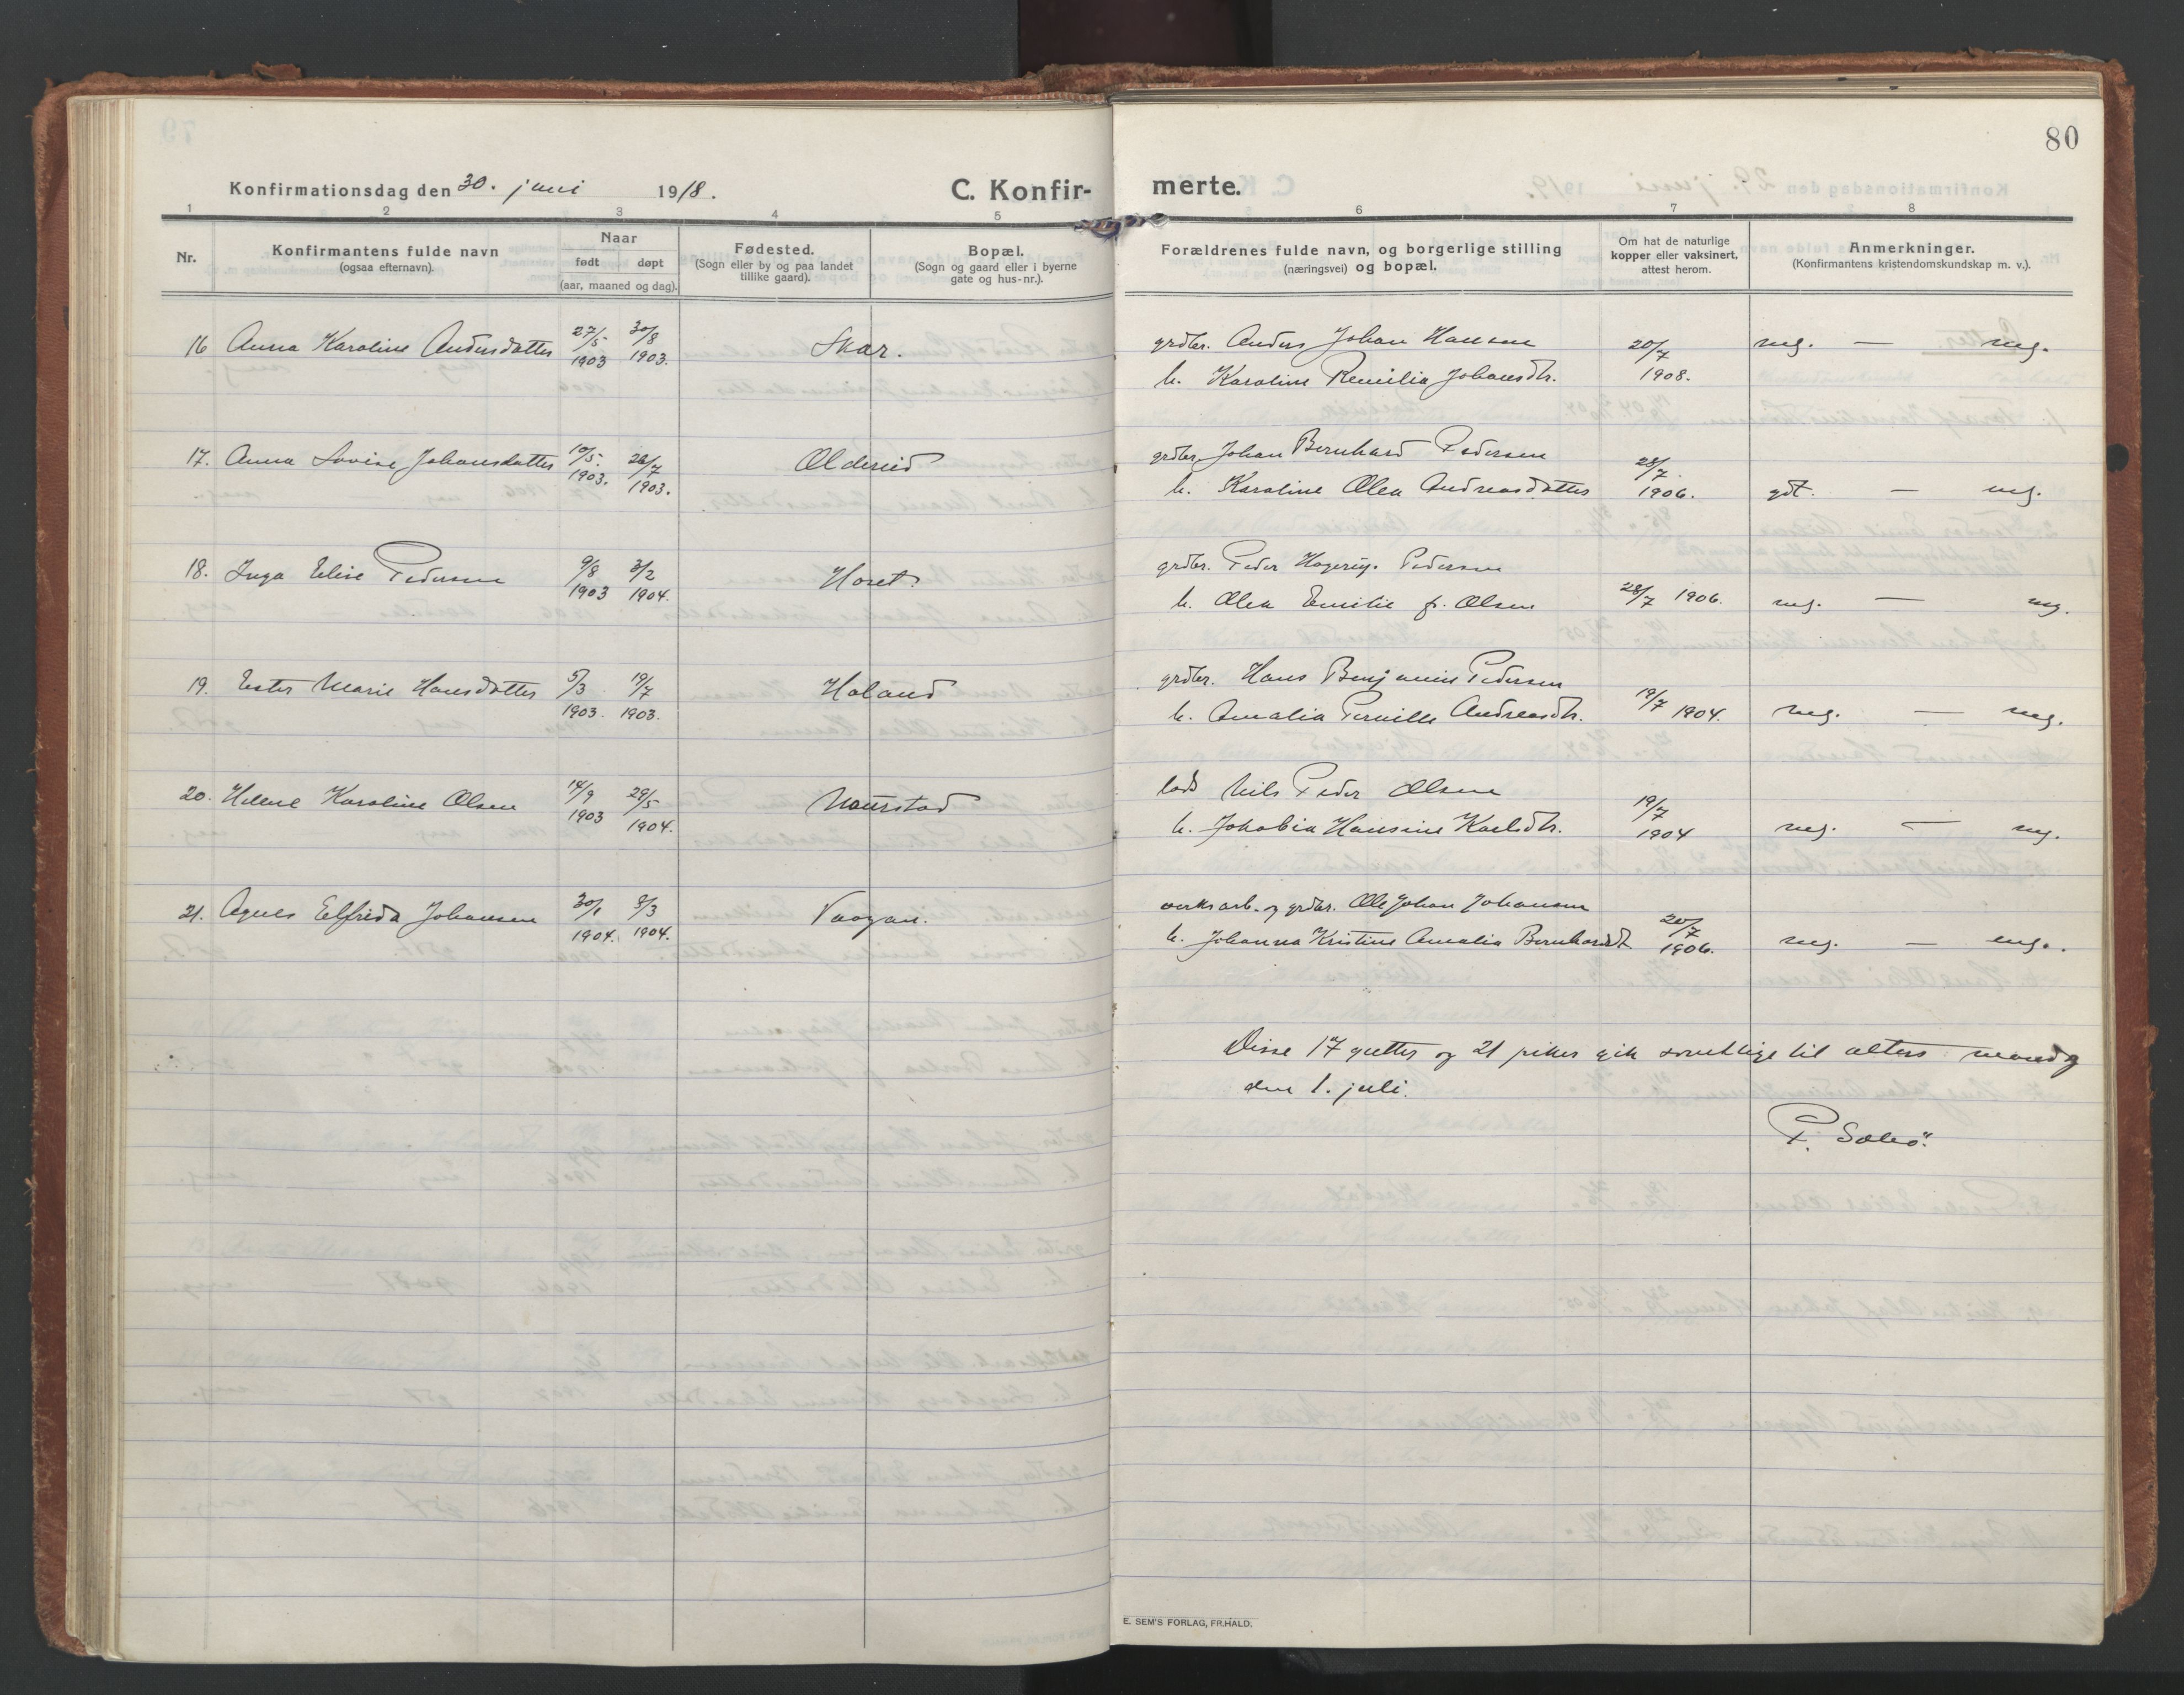 80
Konfirmationsdag den 30. juni 1918.
C. Konfirmerte.
1 2 3 4 5 6 7 8
Nr.
Konfirmantens fulde navn
(ogsaa efternavn).
Naar
født døpt
(aar, maaned og dag).
Fødested.
(Sogn eller by og paa landet
tillike gaard).
Bopæl.
(Sogn og gaard eller i byerne
gate og hus-nr.).
Forældrenes fulde navn, og borgerlige stilling
(næringsvei) og bopæl.
Om hat de naturlige
kopper eller vaksinert,
attest herom.
Anmerkninger.
(Konfirmantens kristendomskundskap m. v.).
16 Anna Karoline Andersdatter 27/5 1903 30/8 1903. Skar. grdbr. Anders Johan Hansen 20/7 1908. mg. — mg.
h. Karoline Remilia Johansdtr.
17. Anna Lovise Johansdatter 10/5. 1903. 26/7 1903. Oldereid grdbr. Johan Bernhard Pedersen 28/7. 1906. gdt. — mg.
h. Karoline Olea Andreasdatter
18. Inga Elise Pedersen 9/8 1903 3/2 1904. Horet. grdbr. Peder Hagerup. Pedersen
h. Olea Emilie f. Olsen 28/7 1906. mg. — mg.
19. Ester Marie Hansdatter 5/3 1903. 19/7 1903. Haland grdbr. Hans Benjamin Pedersen
h. Amalia Pernille Andreasdtr. 19/7 1904. mg. — mg.
20. Helene Karoline Olsen 14/9 1903 29/5 1904. Naurstad lods Nils Peder Olsen
h. Jakobia Hansine Karlsdtr. 19/7 1904 mg. — mg.
21. Agnes Elfrida Johansen 30/1 1904. 8/3 1904. Vaagan. verksarb. og grdbr. Ole Johan Johansen
h. Johanna Kristine Amalia Bernhardsdt 20/7 1906. mg. — mg.
Disse 17 gutter og 21 piker gik samtlige til alters mandag
den 1. juli.
P. Solbø.
E. SEM'S FORLAG, FR.HALD.